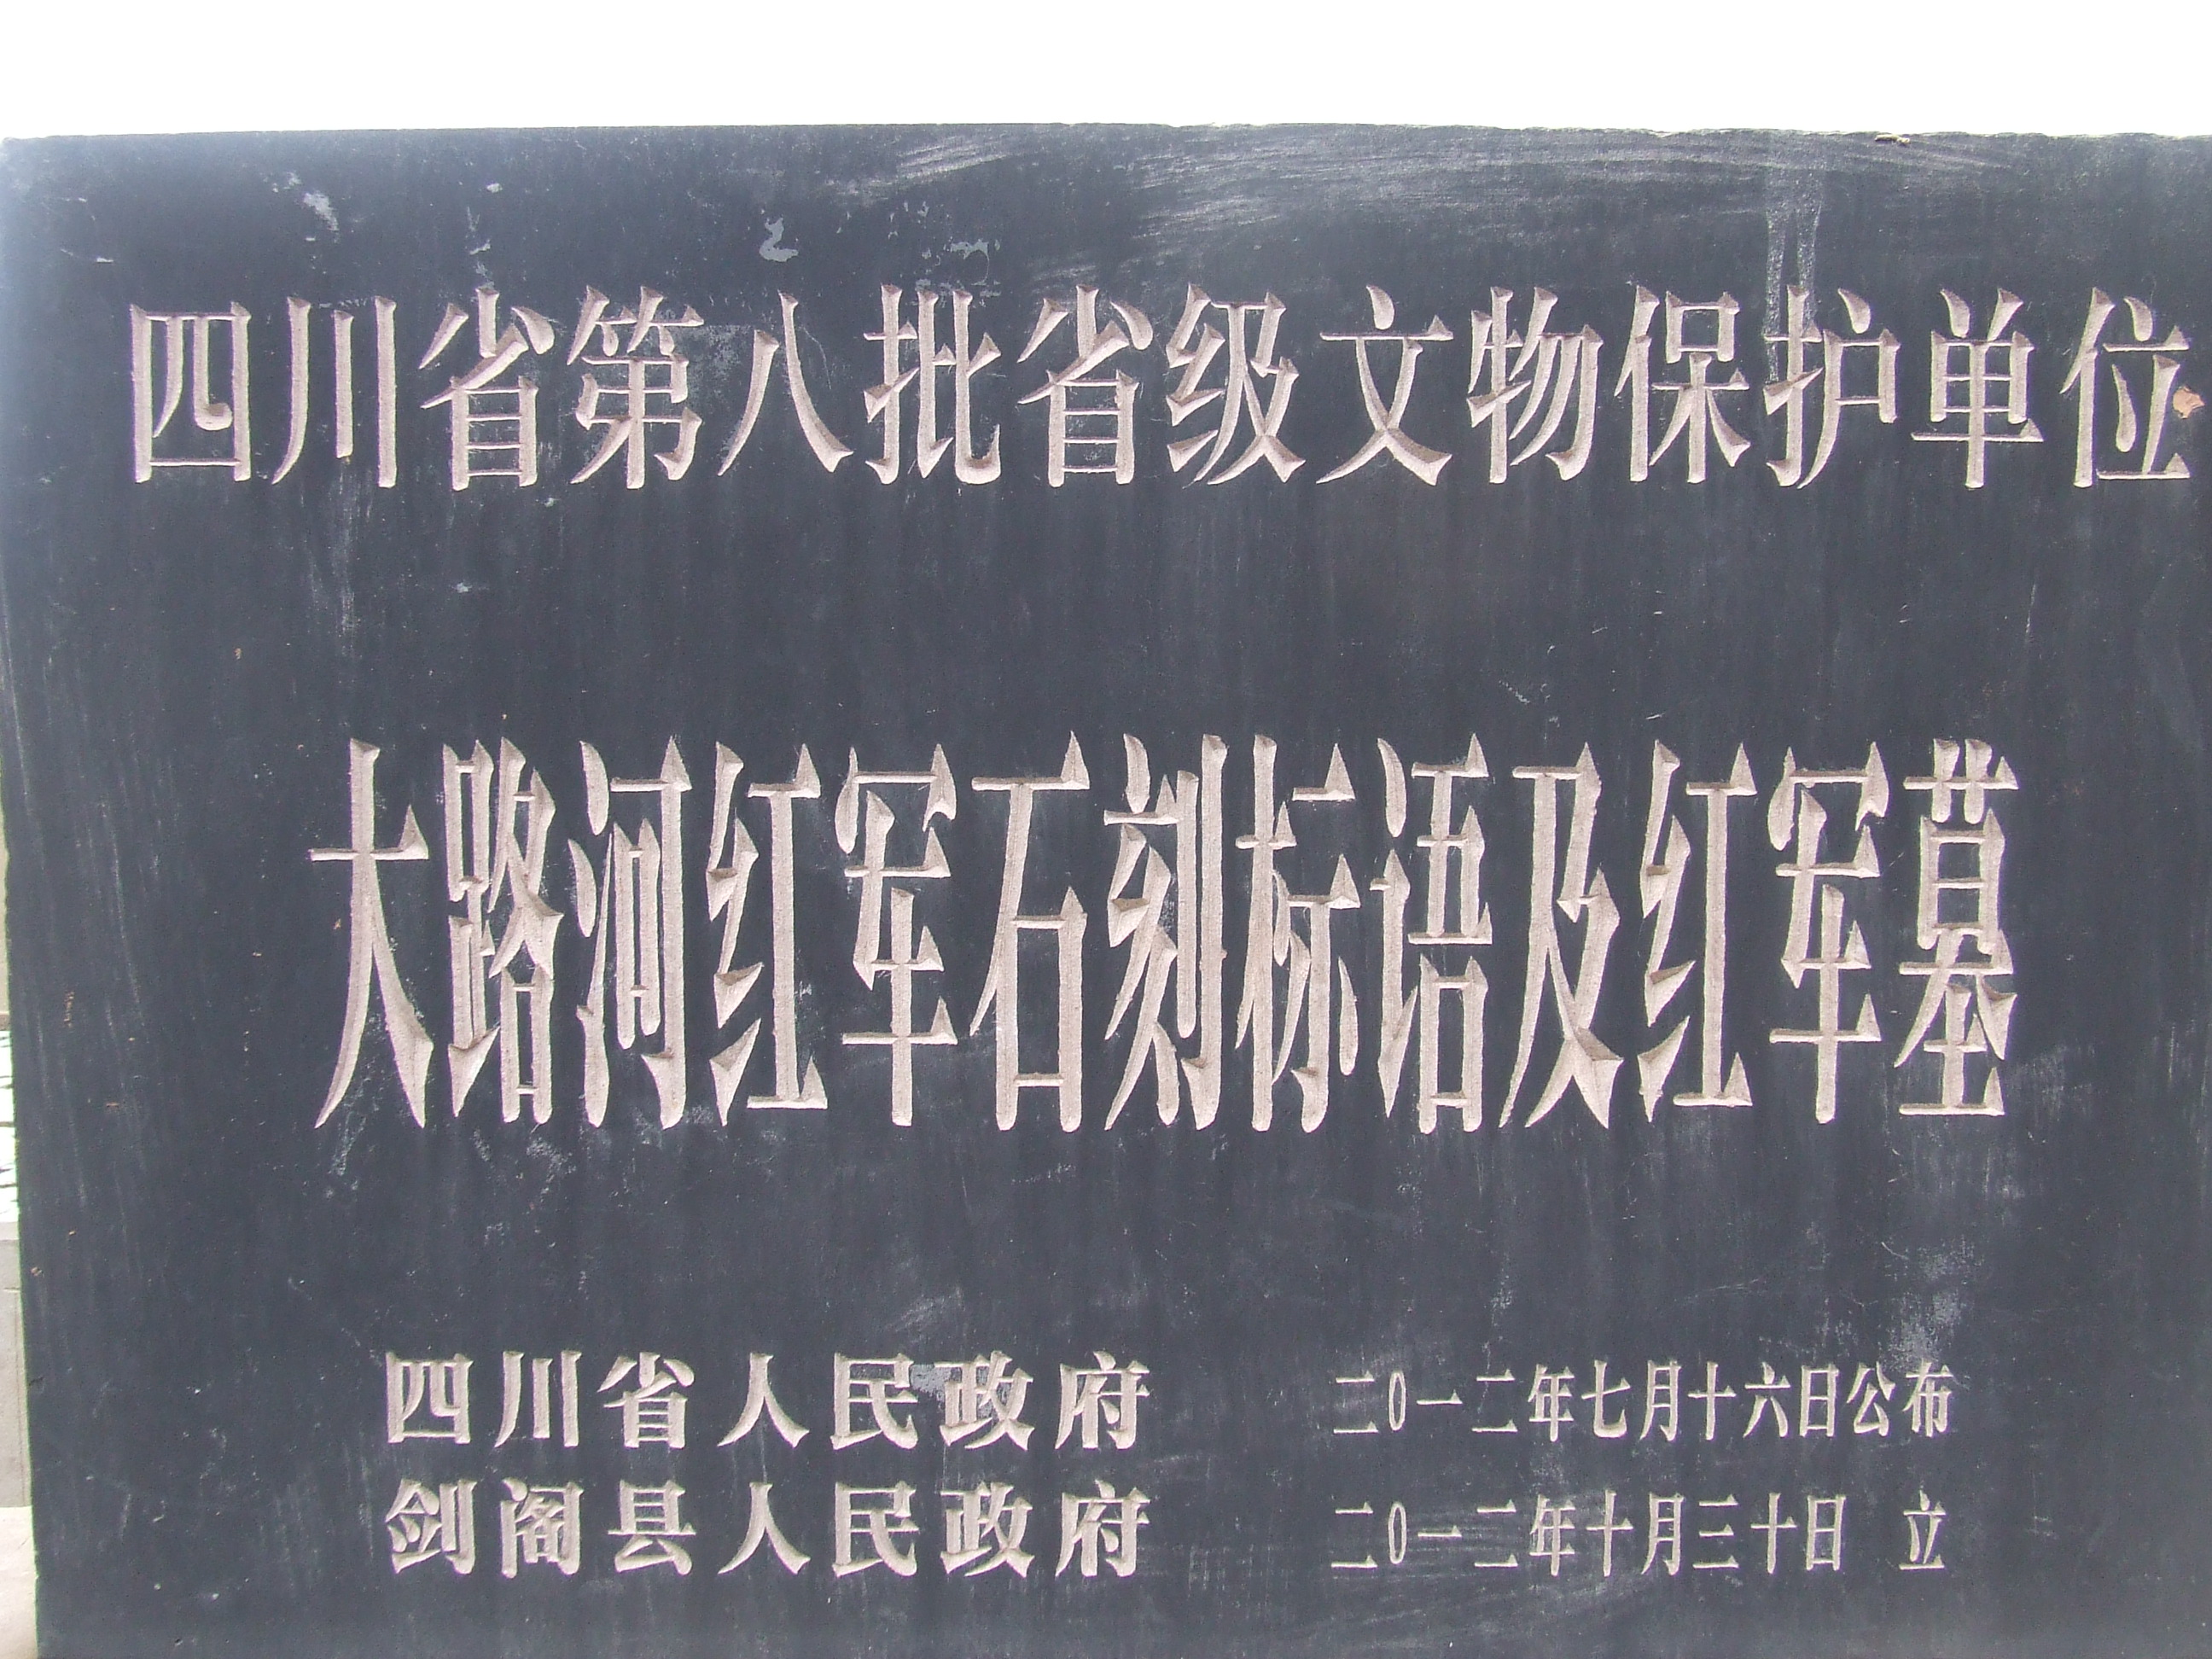 四川省第八批省级文物保护单位
大路河红军石刻标语及红军墓
四川省人民政府 二0一二年七月十六日公布
剑阁县人民政府 二0一二年十月三十日 立